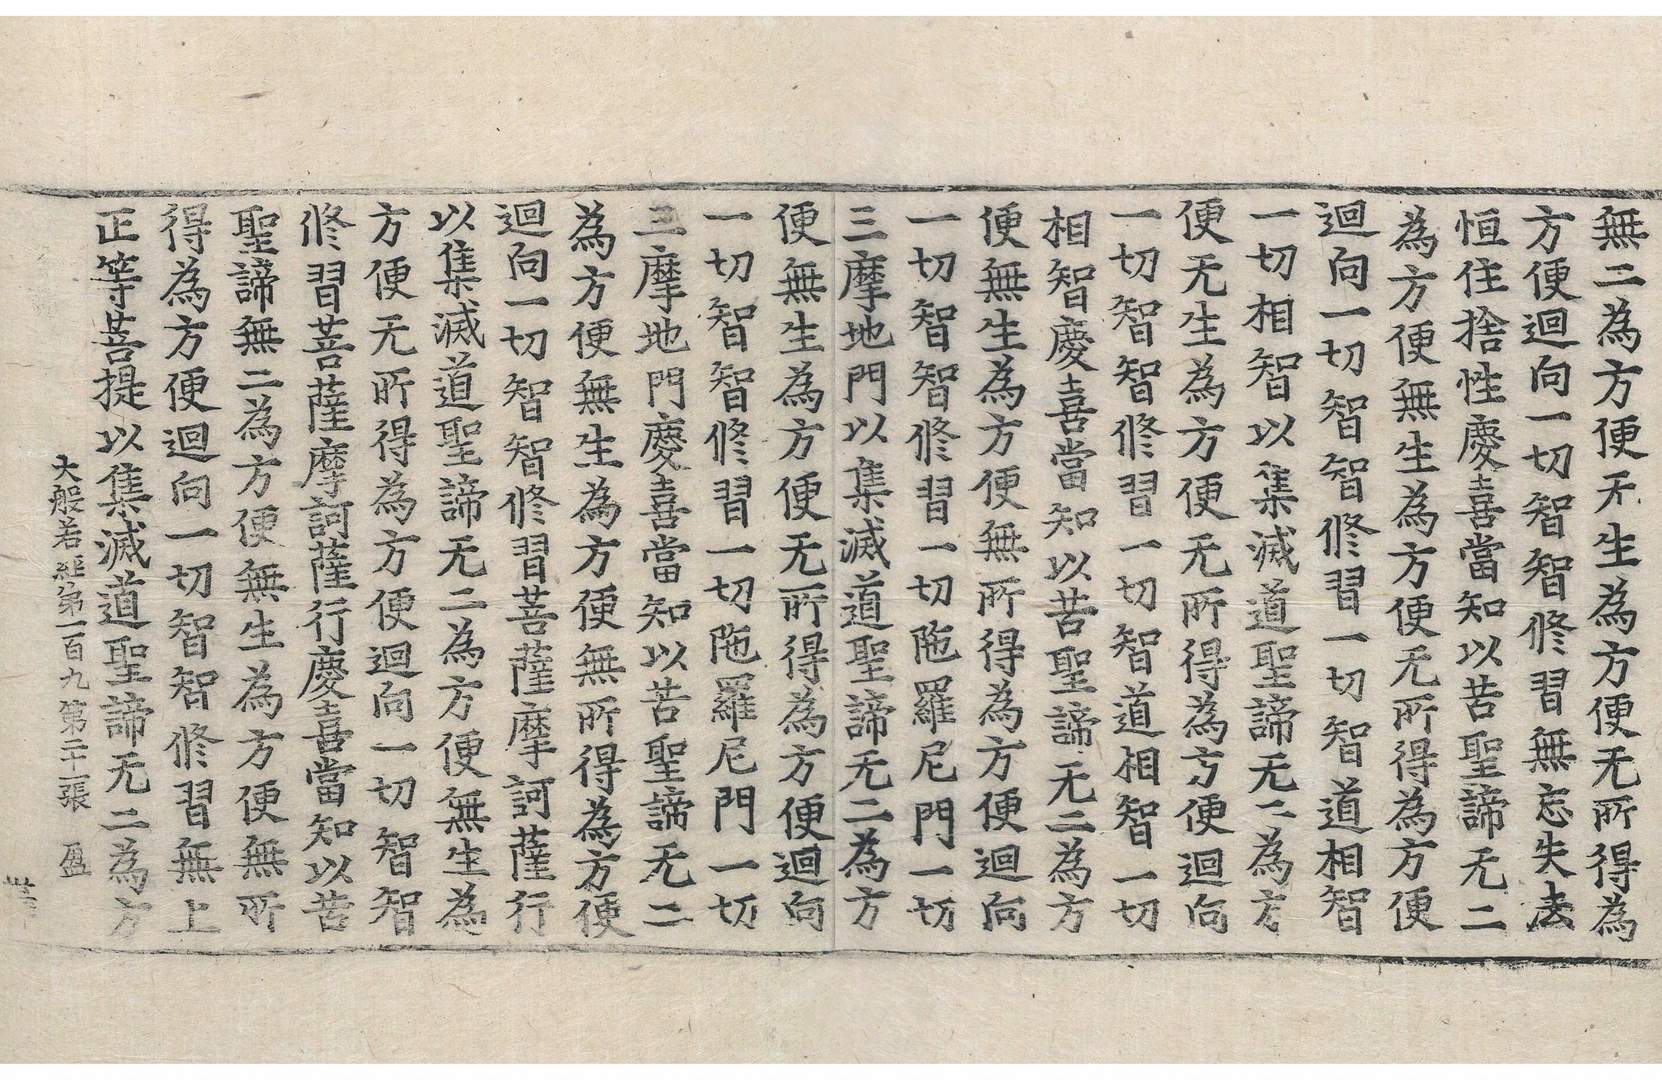 無二為方便无生為方便无所得為
方便迴向一切智智修習無忘失法
恒住捨性慶喜當知以苦聖諦无二
為方便無生為方便无所得為方便
迴向一切智智修習一切智道相智
一切相智以集滅道聖諦无二為方
便无生為方便无所得為方便迴向
一切智智修習一切智道相智一切
相智慶喜當知以苦聖諦无二為方
便無生為方便無所得為方便迴向
一切智智修習一切陁羅尼門一切
三摩地門以集滅道聖諦无二為方
便無生為方便无所得為方便迴向
一切智智修習一切陁羅尼門一切
三摩地門慶喜當知以苦聖諦无二
為方便無生為方便無所得為方便
迴向一切智智修習菩薩摩訶薩行
以集滅道聖諦无二為方便無生為
方便无所得為方便迴向一切智智
修習菩薩摩訶薩行慶喜當知以苦
聖諦無二為方便無生為方便無所
得為方便迴向一切智智修習無上
正等菩提以集滅道聖諦无二為方
大般若經第一百九第二十張 盈